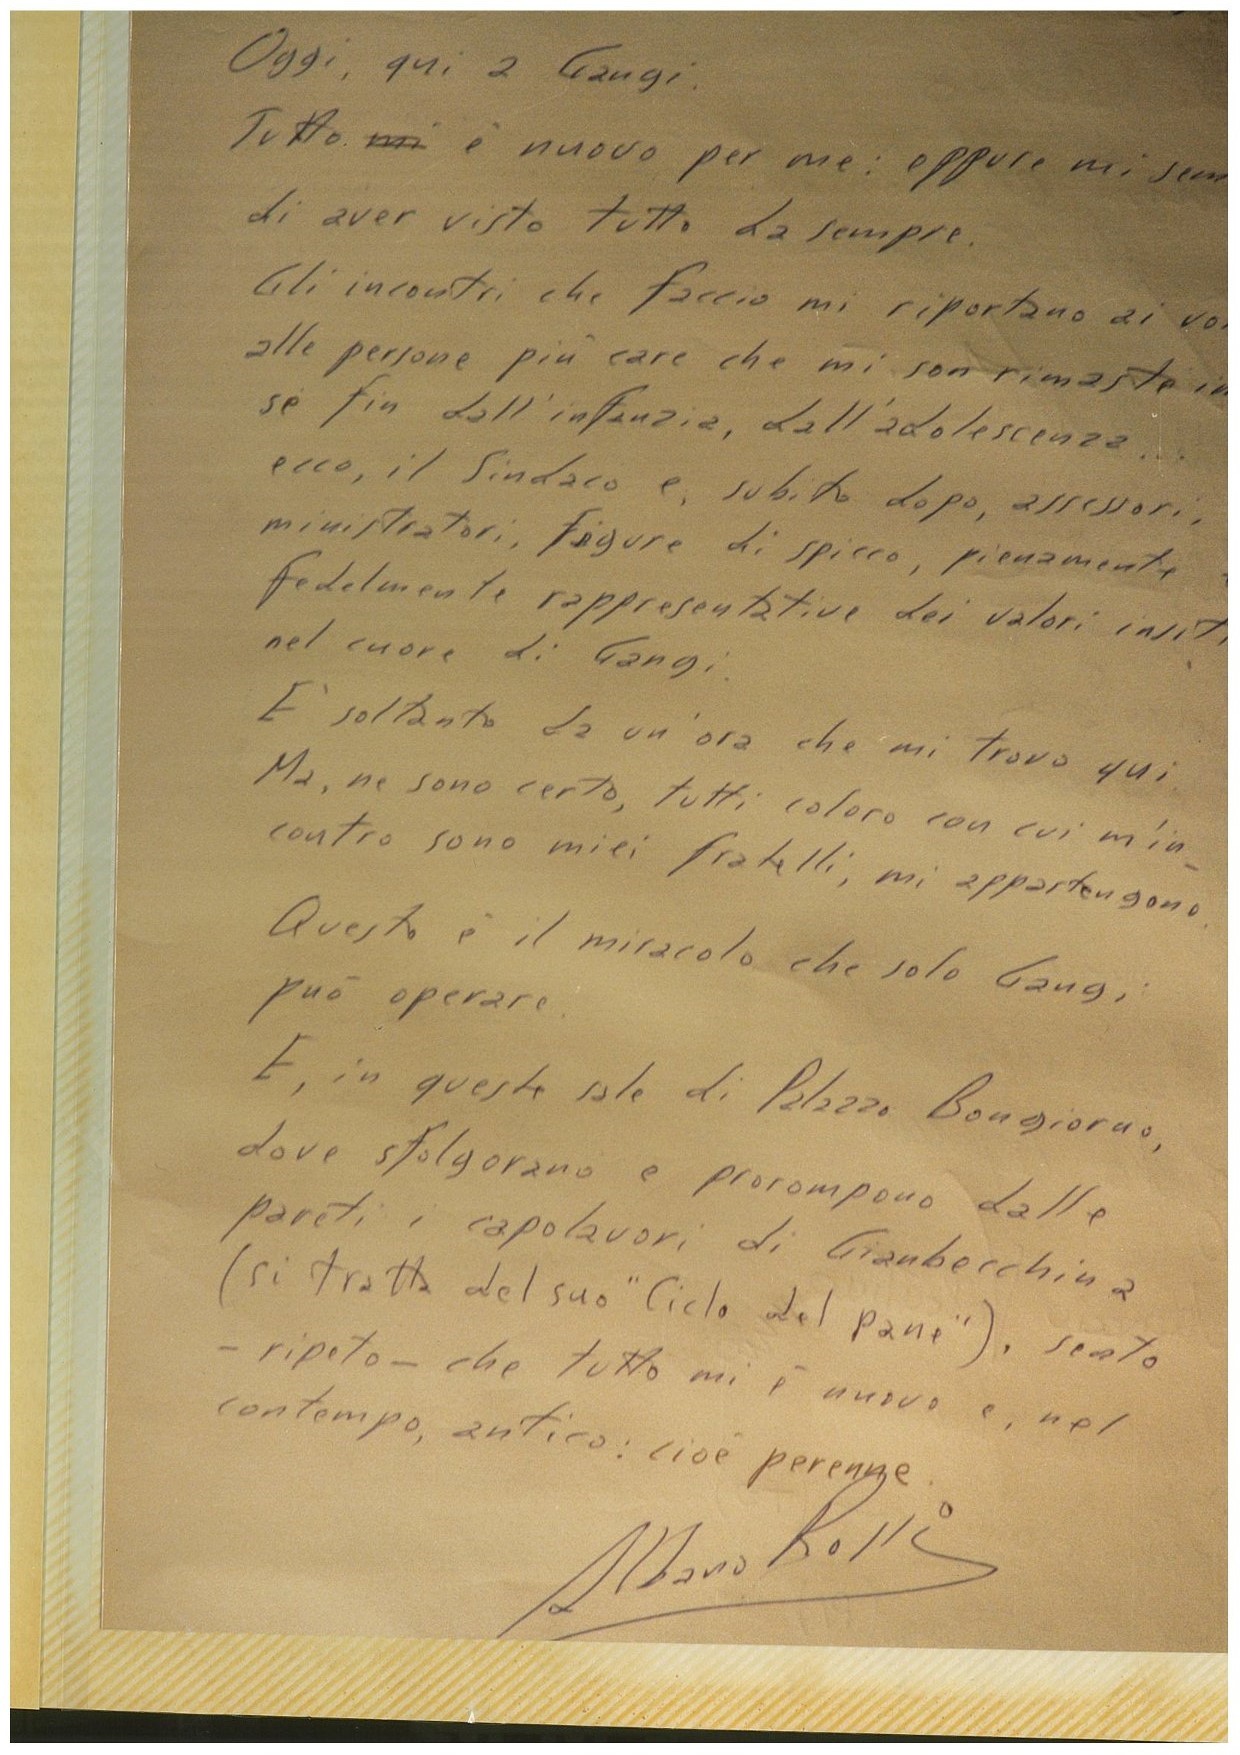 Oggi, qui a Gangi.
Tutto. mi è nuovo per me: oppure mi sem
di aver visto tutto da sempre.
Gli incontri che faccio mi riportano ai vol
alle persone più care che mi son rimaste im
se fin dall'infanzia, dall'adolescenza...
ecco, il Sindaco e, subito dopo, assessori,
ministratori, figure di spicco, pienamente
fedelmente rappresentative dei valori insiti
nel cuore di Gangi.
E' soltanto da un'ora che mi trovo qui.
Ma, ne sono certo, tutti coloro con cui m'in-
contro sono miei fratelli, mi appartengono.
Questo è il miracolo che solo Gangi
può operare.
E, in queste sale di Palazzo Bongiorno,
dove sfolgorano e prorompono dalle
pareti i capolavori di Gianbecchina
(si tratta del suo "Ciclo del pane"), sento
- ripeto - che tutto mi è nuovo e, nel
contempo, antico: cioè perenne.
Albano Rossi